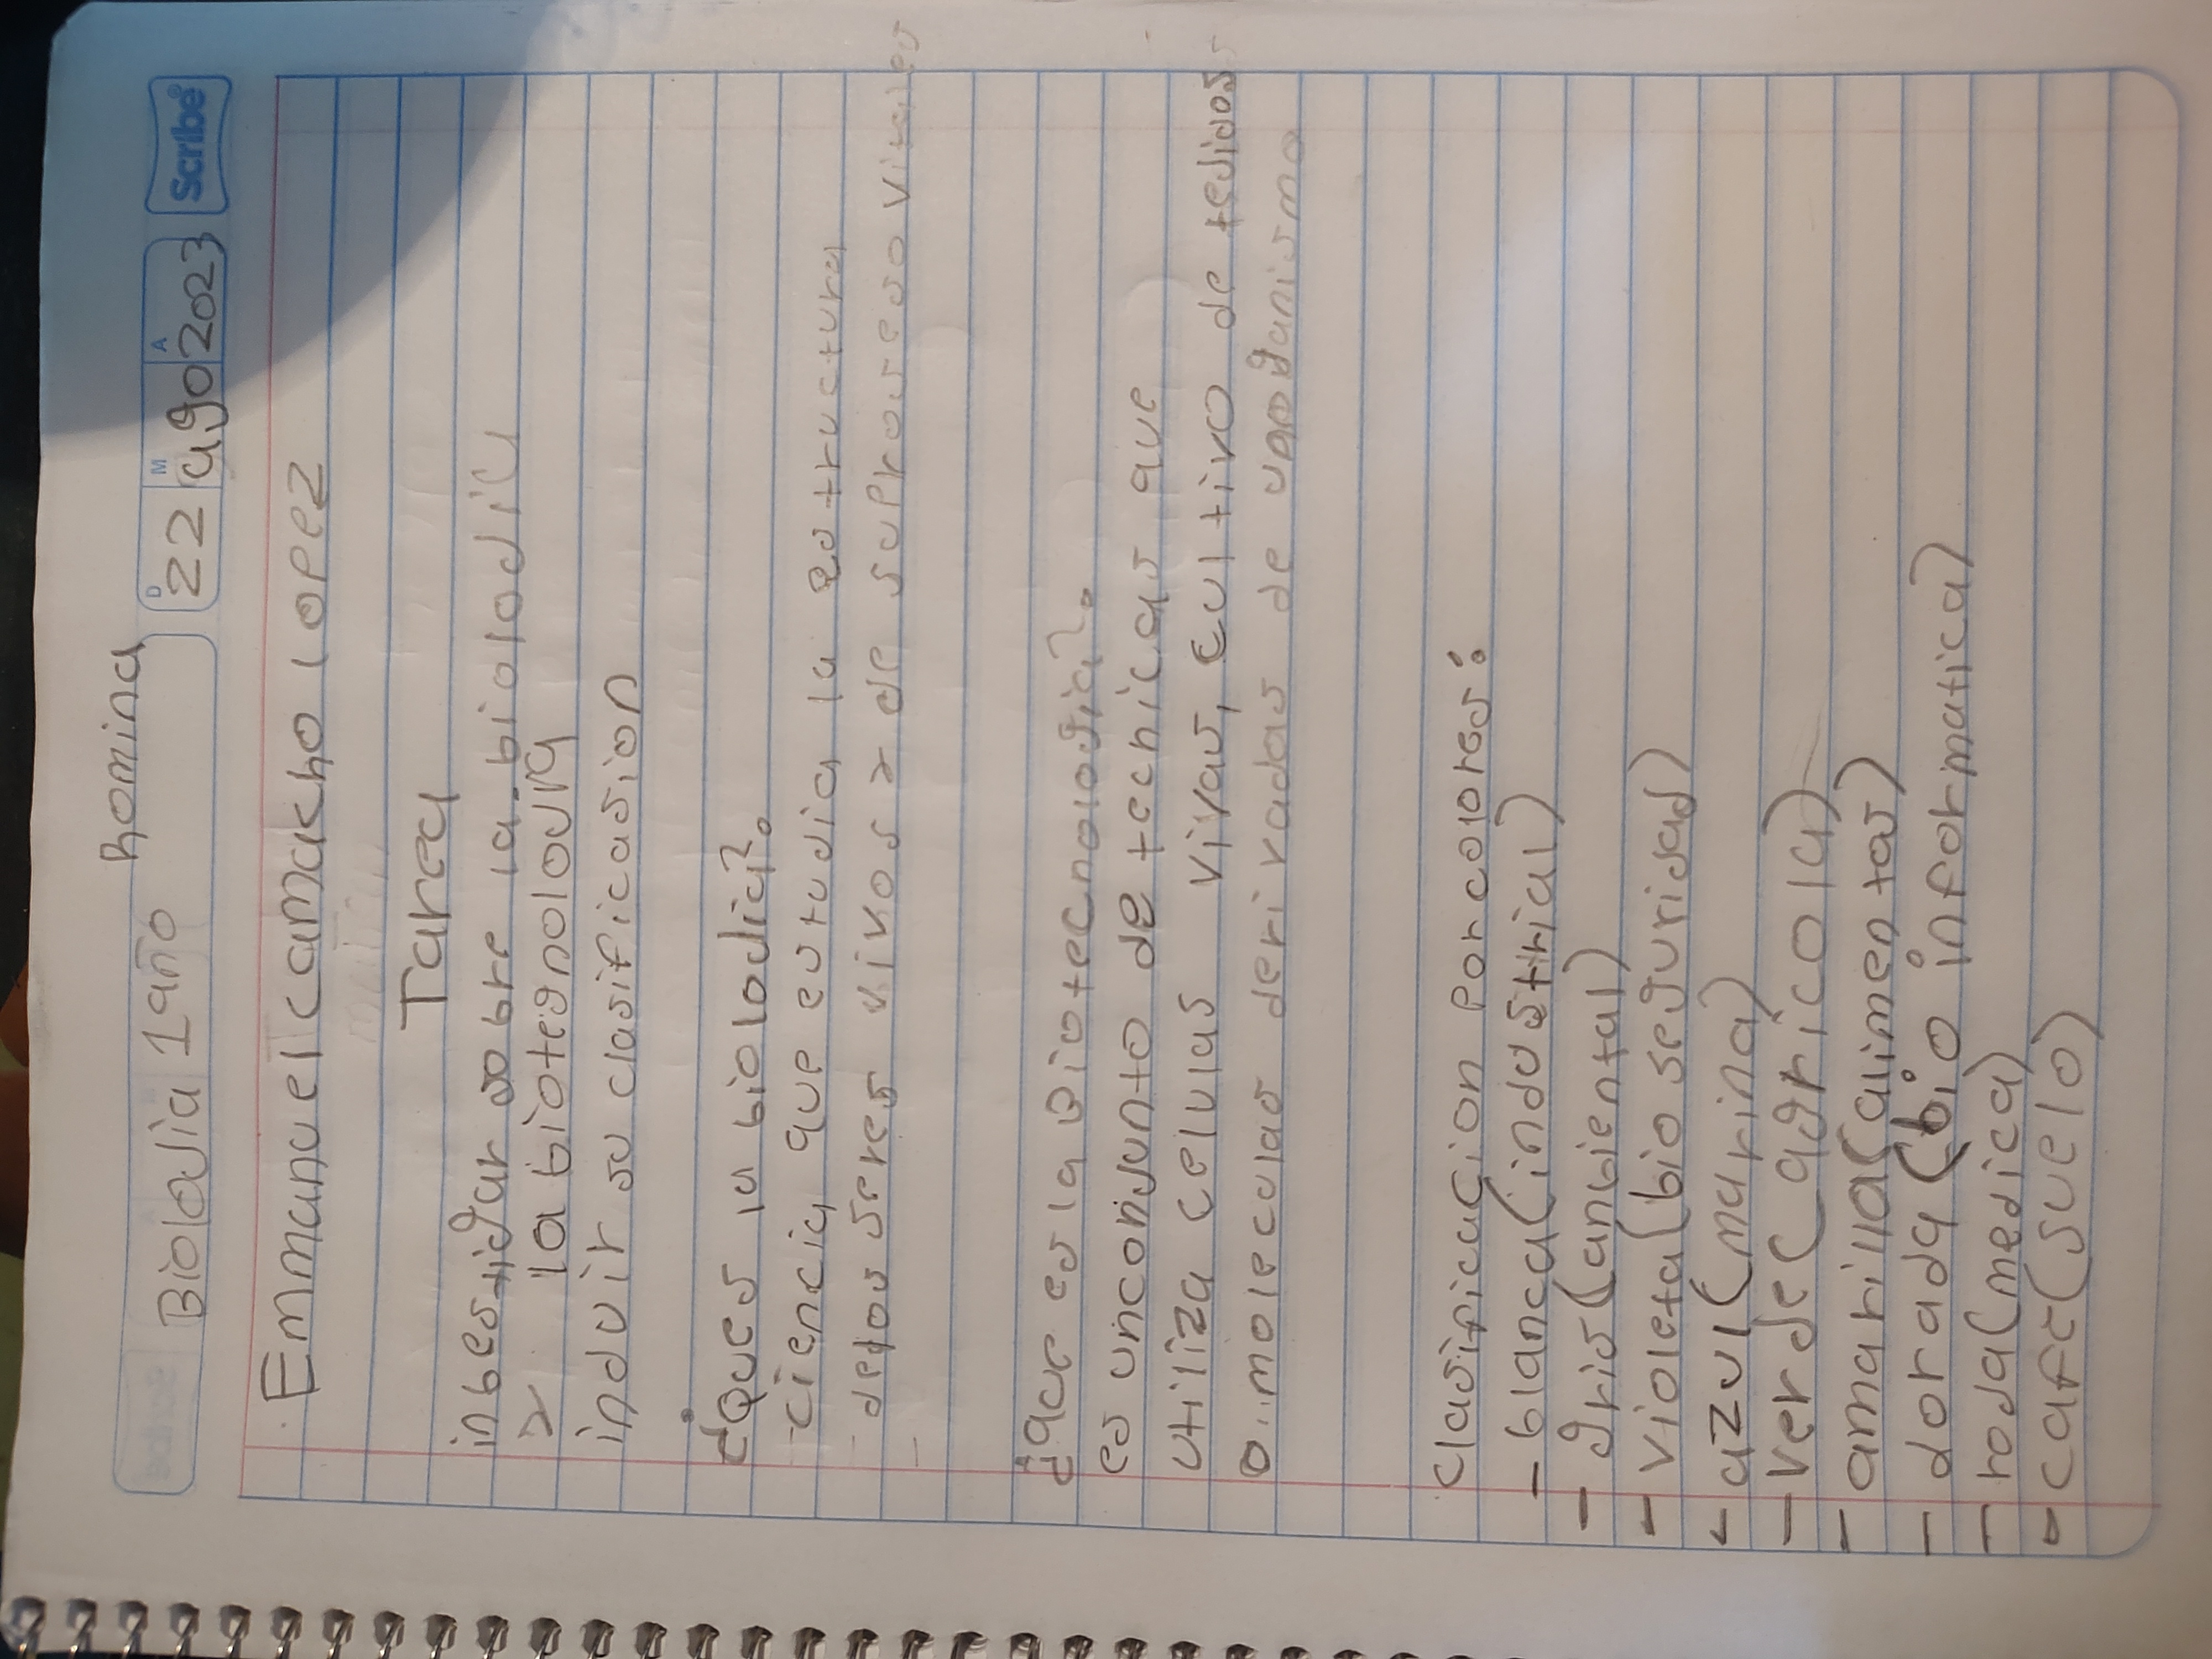 Romina
Biolojia 1año
D M A
22 ago 2023
Scribe
Emmanuel camacho lopez
Tarea
inbestigar sobre la biolojia
y la biotegnolovia
induir su clasificasion
¿Ques la biolodia?
ciencia que estudia la estructura
delos seres vivos y de sus prosesos vitales
¿que es la Biotecnologia?
es unconjunto de technicas que
utiliza celulas vivas, cultivo de tejidos
o moleculas derivadas de organismo
clasificacion por colores:
- blanca (industrial)
- gris (anbiental)
- violeta (bio segurisad)
- azul (marina)
- verde (agricola)
- amarilla (alimentos)
- dorada (bio informatica)
- roja (medica)
- cafe (suelo)